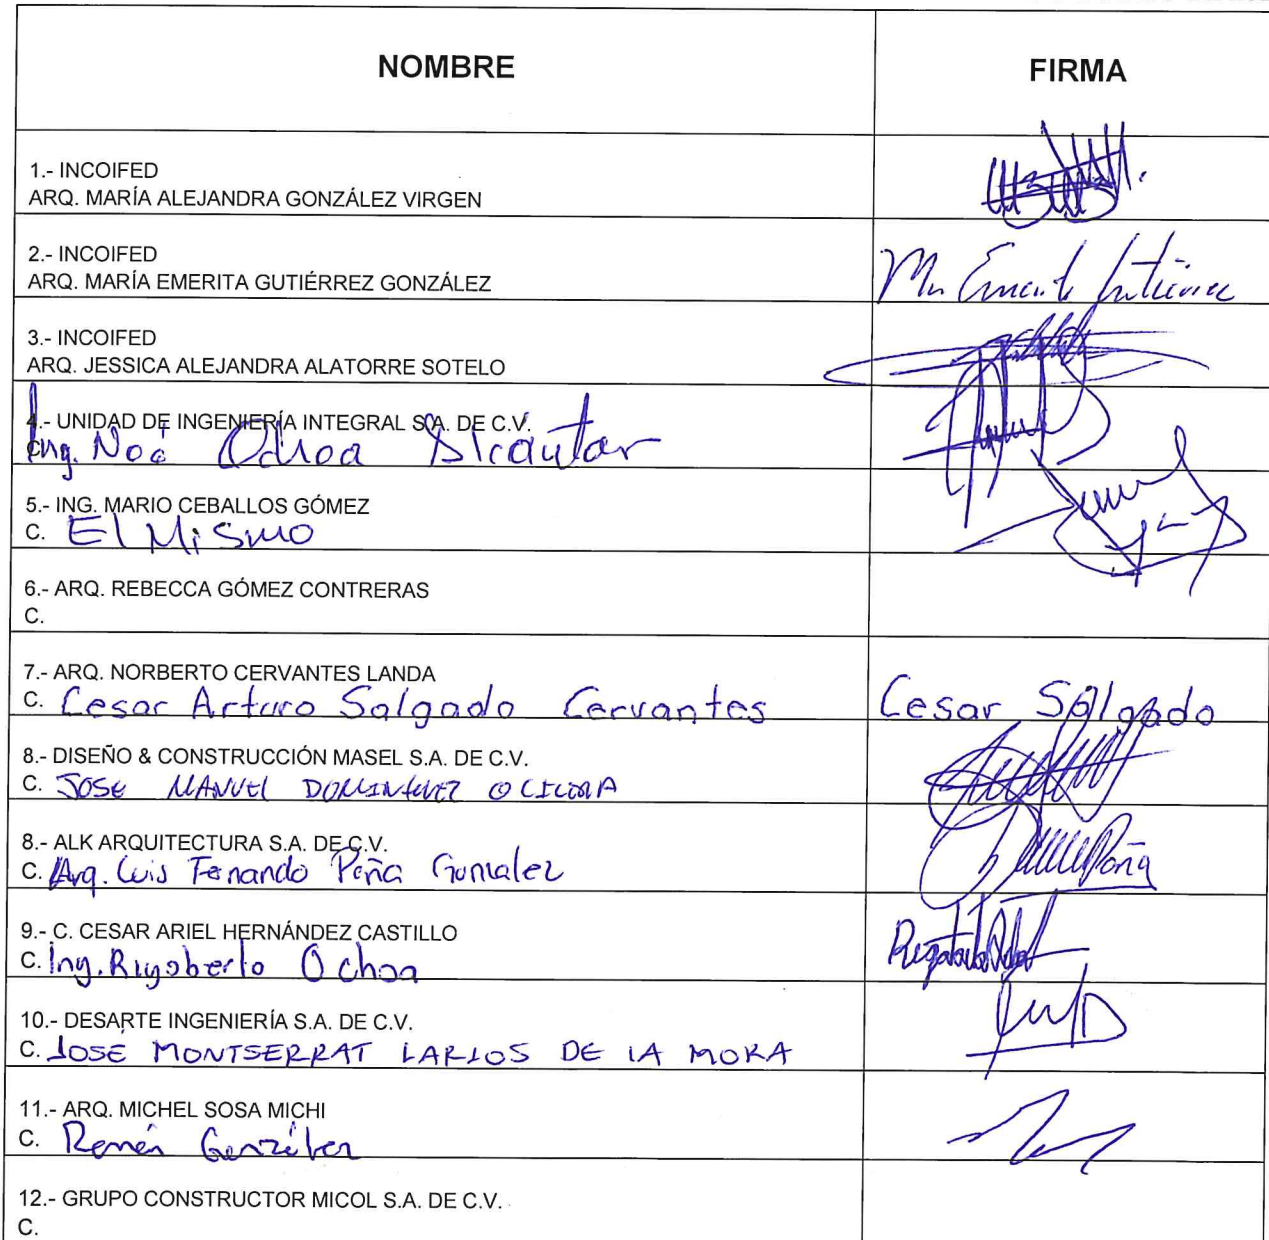 NOMBRE
FIRMA
1.- INCOIFED
ARQ. MARÍA ALEJANDRA GONZÁLEZ VIRGEN
2.- INCOIFED
ARQ. MARÍA EMERITA GUTIÉRREZ GONZÁLEZ
3.- INCOIFED
ARQ. JESSICA ALEJANDRA ALATORRE SOTELO
4.- UNIDAD DE INGENIERÍA INTEGRAL S.A. DE C.V.
C. Ing. Noé Ochoa Alcantar
5.- ING. MARIO CEBALLOS GÓMEZ
C. El Mismo
6.- ARQ. REBECCA GÓMEZ CONTRERAS
C.
7.- ARQ. NORBERTO CERVANTES LANDA
C. Cesar Arturo Salgado Cervantes Cesar Salgado
8.- DISEÑO & CONSTRUCCIÓN MASEL S.A. DE C.V.
C. JOSE MANUEL
8.- ALK ARQUITECTURA S.A. DE C.V.
C. Arq. Luis Fernando Peña Gonzalez Peña
9.- C. CESAR ARIEL HERNÁNDEZ CASTILLO
C. Ing. Rigoberto Ochoa
10.- DESARTE INGENIERÍA S.A. DE C.V.
C. JOSÉ MONTSERRAT LARIOS DE LA MORA
11.- ARQ. MICHEL SOSA MICHI
C.
12.- GRUPO CONSTRUCTOR MICOL S.A. DE C.V.
C.